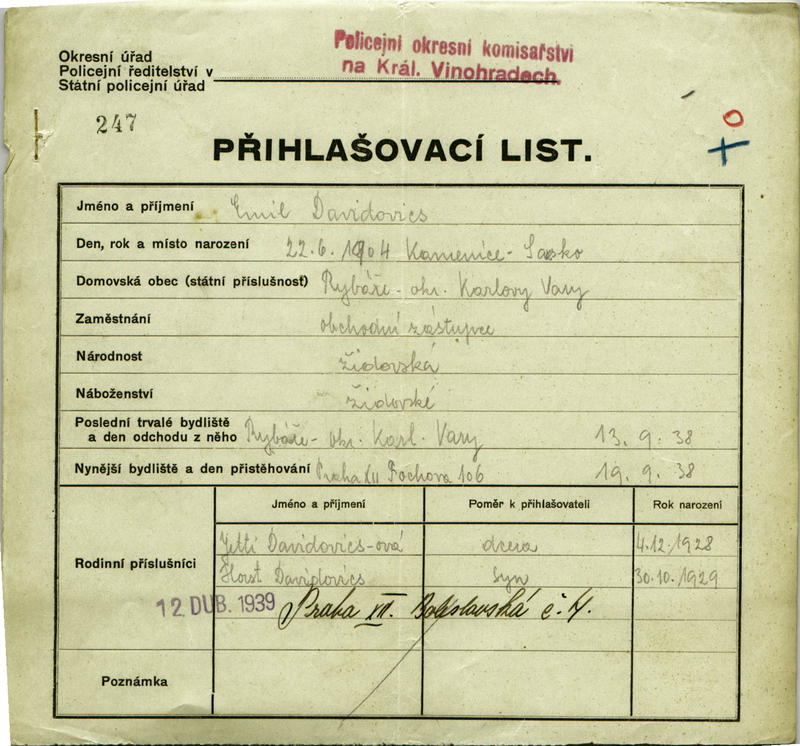 Okresní úřad
Policejní ředitelství v
Státní policejní úřad
Policejní okresní komisařství
na Král. Vinohradech.
247
PŘIHLAŠOVACÍ LIST.
Jméno a příjmení Emil Davidovics
Den, rok a místo narození 22.6.1904 Kamenice - Sasko
Domovská obec (státní příslušnost) Rybáře - okr. Karlovy Vary
Zaměstnání obchodní zástupce
Národnost židovská
Náboženství židovské
Poslední trvalé bydliště
a den odchodu z něho Rybáře - okr. Karl. Vary 13. 9. 38
Nynější bydliště a den přistěhování Praha XII Fochova 106 19. 9. 38
Jméno a příjmení Poměr k přihlašovateli Rok narození
Rodinní příslušníci
Jetti Davidovics-ová dcera 4.12.1928
Horst Davidovics syn 30.10.1929
12 DUB. 1939 Praha XII. č. 4.
Poznámka